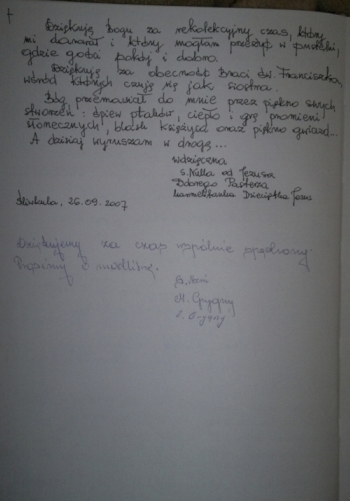 †
Dziękuję Bogu za rekolekcyjny czas, który
mi darował i który mogłam przeżyć w pustelni,
gdzie gości pokój i dobro.
Dziękuję za obecność Braci św. Franciszka,
wśród których czuję się jak siostra.
Bóg przemawiał do mnie przez piękno swych
stworzeń: śpiew ptaków, ciepło i grę promieni
słonecznych, blask księżyca oraz piękno gwiazd...
A dzisiaj wyruszam w drogę...
wdzięczna
s. od Jezusa
Dobrego Pasterza
karmelitanka Dzieciątka Jezus
26.09.2007
Dziękujemy za czas wspólnie spędzony
Prosimy o modlitwę.